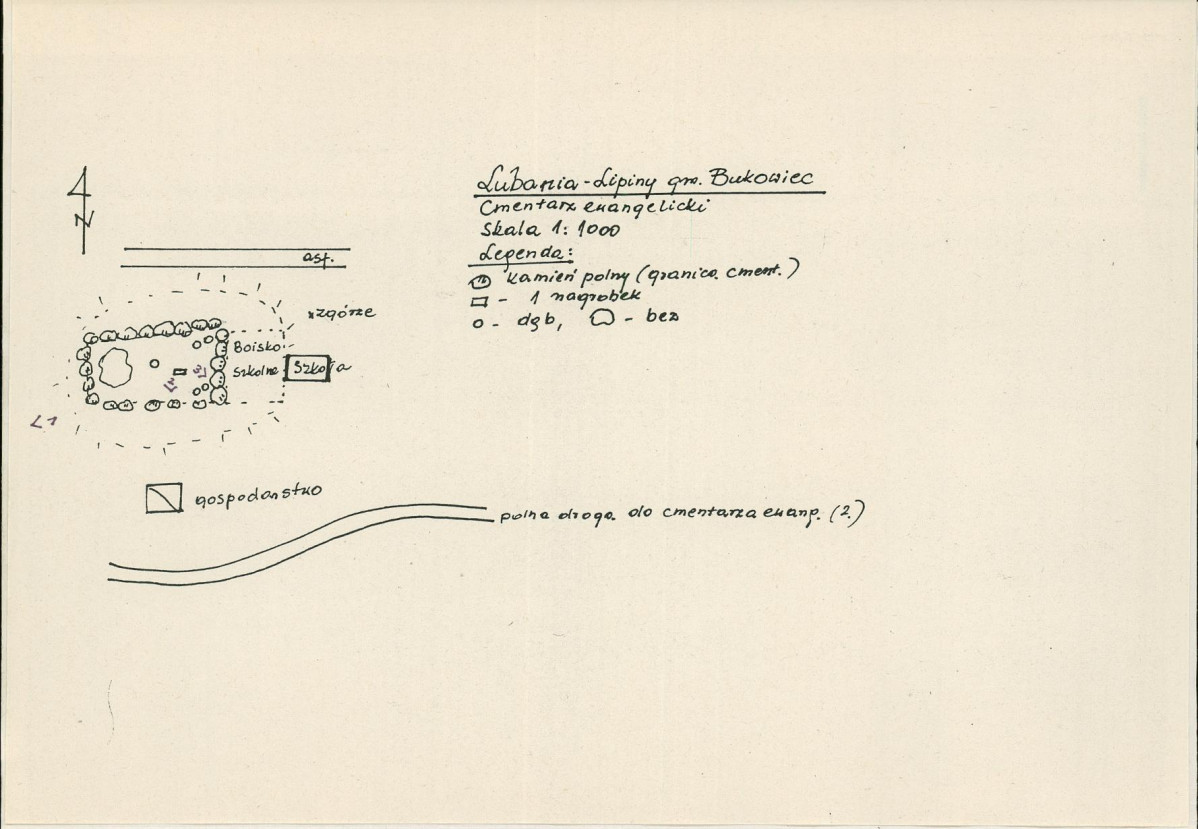 Lubania-Lipiny gm. Bukowiec
Cmentarz ewangelicki
Skala 1: 1000
Legenda:
kamień polny (granica cment.)
- 1 nagrobek
o - dąb, - bez
N
asf.
wzgórze
Boisko
szkolne
Szkoła
<1
gospodarstwo
polna droga do cmentarza ewang. (2.)